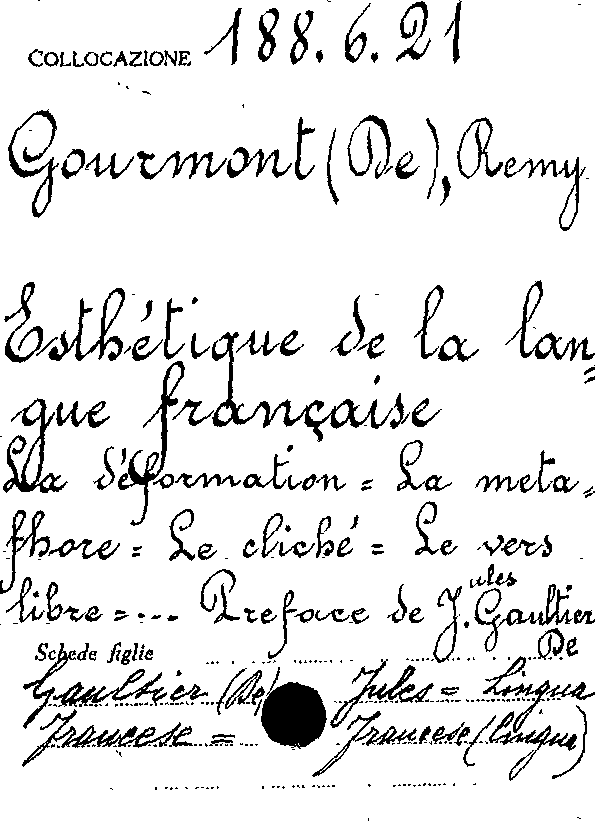 COLLOCAZIONE 188.6.21
Gourmont (De), Remy
Esthétique de la lan=
gue française
La déformation = La meta=
phore = Le cliché = Le vers
libre = ... Preface de Jules Gaultier
De
Schede figlie
Gaultier (De) Jules = Lingua
Francese = Francese (lingua)